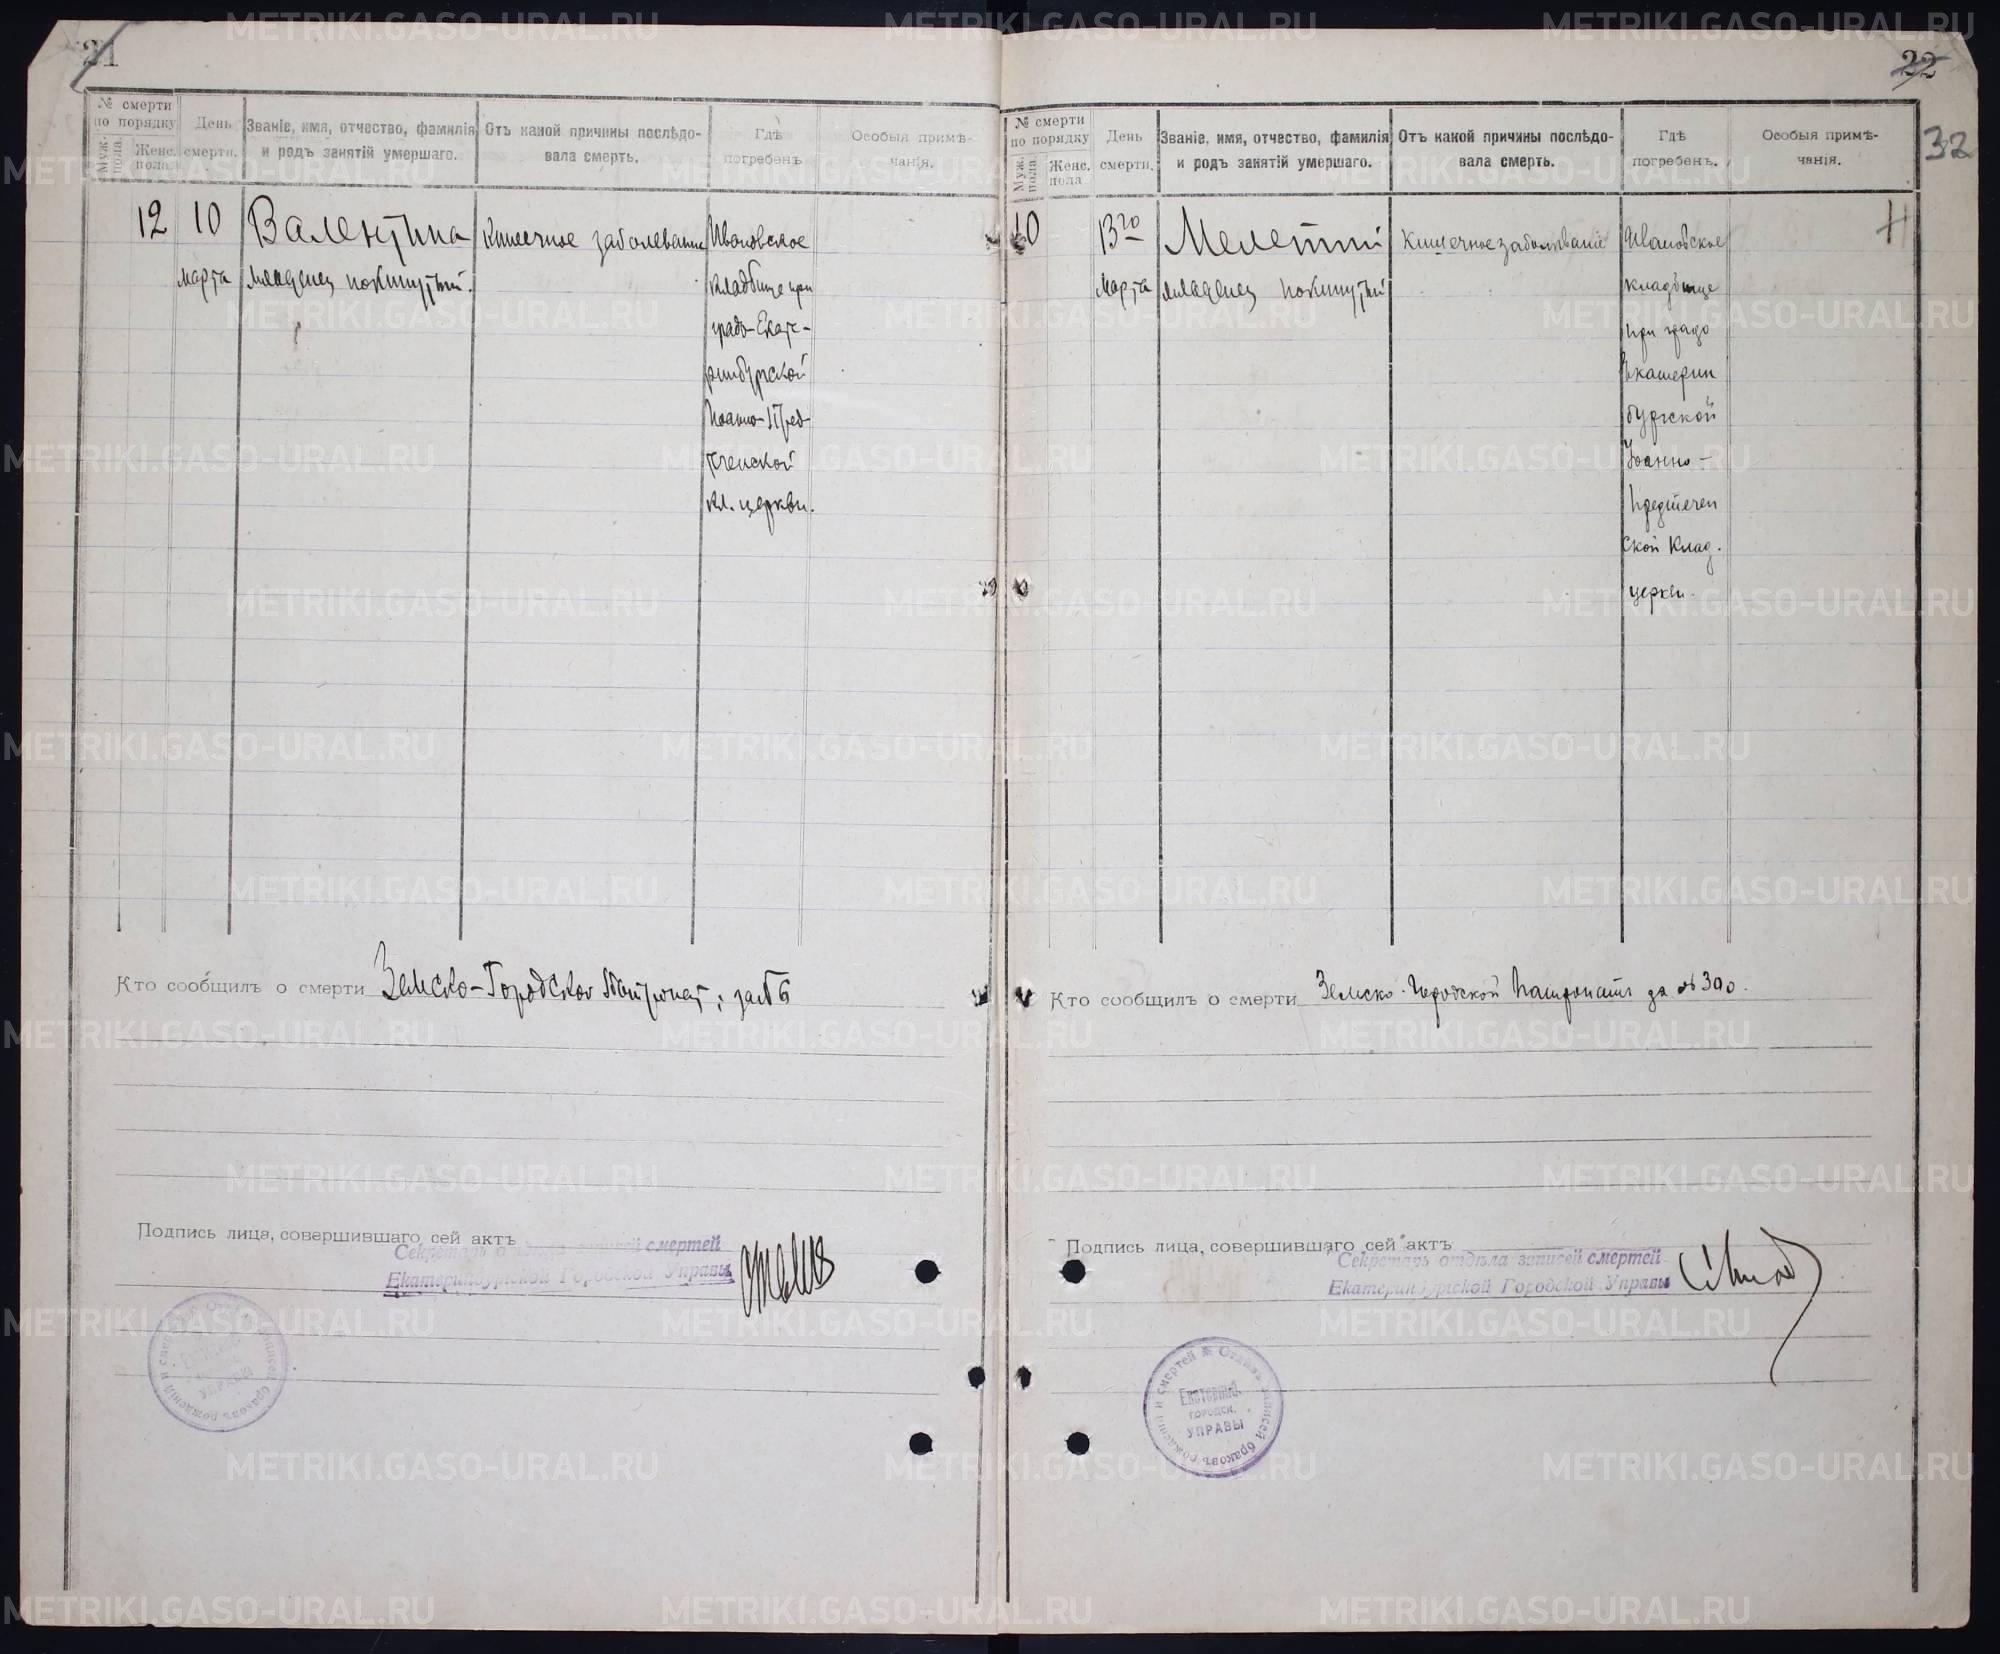 21
№ смерти
по порядку
Муж. пола.
Женс. пола
День смерти.
Званіе, имя, отчество, фамилія
и родъ занятій умершаго.
Отъ какой причины послѣдо-
вала смерть.
Гдѣ
погребенъ
Особыя примѣ-
чанія.
12 10 Валентина Кишечное заболевание Ивановское
марта младенец покинутый. кладбище при
градо-Екате-
ринбургской
Иоанно-Пред-
теченской
кл. церкви.
Кто сообщилъ о смерти Земско-Городской Патронат; за № 6
Подпись лица, совершившаго сей актъ
Секретарь отдѣла записей смертей
Екатеринбургской Городской Управы
22
32
№ смерти
по порядку
Муж. пола
Женс. пола
День
смерти.
Званіе, имя, отчество, фамилія
и родъ занятій умершаго.
Отъ какой причины послѣдо-
вала смерть.
Гдѣ
погребенъ.
Особыя примѣ-
чанія.
10 13го Мелетий Кишечное заболѣваніе Ивановское
марта младенец покинутый кладбище
при градо
Екатерин
бургской
Іоанно-
Предтечен
ской Клад.
церкви.
Кто сообщилъ о смерти Земско-Городской Патронатъ за № 390.
Подпись лица, совершившаго сей актъ
Секретарь отдѣла записей смертей
Екатеринбургской Городской Управы
Отдѣлъ записей браковъ рожденій и смертей
Екатеринб.
городск.
УПРАВЫ
METRIKI.GASO-URAL.RU